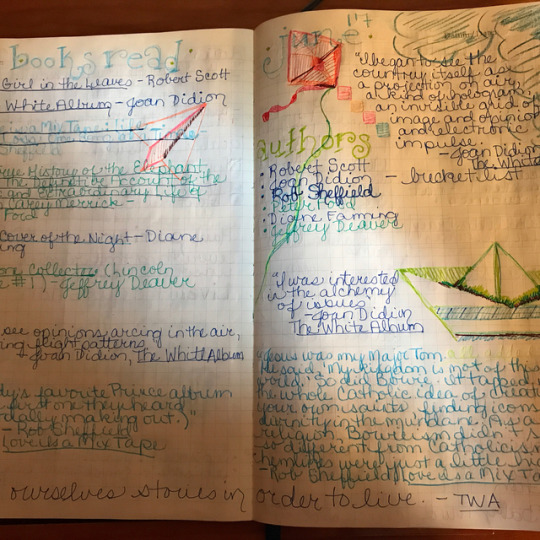 books read.
Girl in the Leaves - Robert Scott
White Album - Joan Didion
Love is a Mix Tape: Life
True History of the Elephant
the Definitive Account of the
and Extraordinary Life of
Carey Merrick -
Ford
Cover of the Night - Diane
Collector (Lincoln
#1) - Jeffrey Deaver
see opinions arcing in the air,
flight patterns
- Joan Didion, The White Album
favorite Prince album
first one they heard
(Really making out.)"
- Rob Sheffield
Love is a Mix Tape
ourselves stories in order to live. - TWA
june '17
"I began to see the
country itself as
a projection on air,
a kind of hologram,
an invisible grid of
image and opinion
and electronic
impulse."
- Joan Didion
The White
authors
• Robert Scott
• Joan Didion - bucket list
• Rob Sheffield
• Peter Ford
• Diane Fanning
• Jeffrey Deaver
"I was interested
in the alchemy
of issues"
- Joan Didion
The White Album
"Jesus was my Major Tom.
He said 'My kingdom is not of this
world.' So did Bowie.
the whole Catholic idea of
your own saints, finding icons
divinity in the mundane. As a
religion, Bowieism didn't
so different from Catholicism
hemlines were just a little
- Rob Sheffield, Love is a Mix